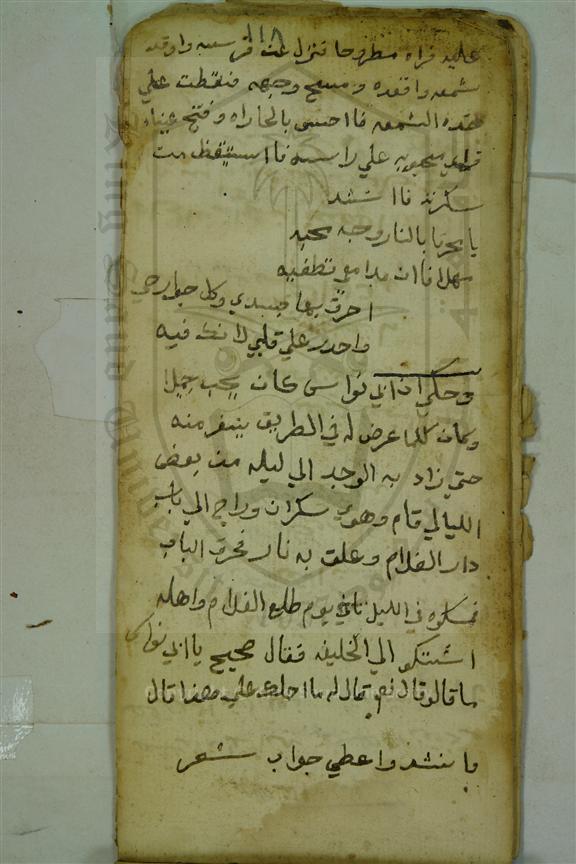 ١١٨
عليه فراه مطروحا فنزل عن فرسه واوقد
شمعه واقعده ومسح وجهه فنقطت علي
خده الشمعه فااحس بالحراره وفتح عيناه
فراي محبوبه علي راسه فااستيقظ من
سكرته فاانشد
يا محرقا بالنار وجه محبه
مهلا فاان مدامعي تطفيه
احرق بها جسدي وكل جوارحي
واحدر علي قلبي لانك فيه
وحكي ان ابي نواس كان يحب جميلا
وكان كلما عرض له في الطريق ينفر منه
حتي زاد به الوجد الي ليله من بعض
الليالي قام وهوي سكران وراح الي باب
دار الغلام وعلق به نار فحرق الباب
فمسكوه في الليل ثاني يوم طلع الغلام واهله
اشتكو الي الخليفه فقال صحيح يا ابي نواس
ما قالو قال نعم قال له ما احلك علي هذا قال
ما ننشد واعطي جواب شعر